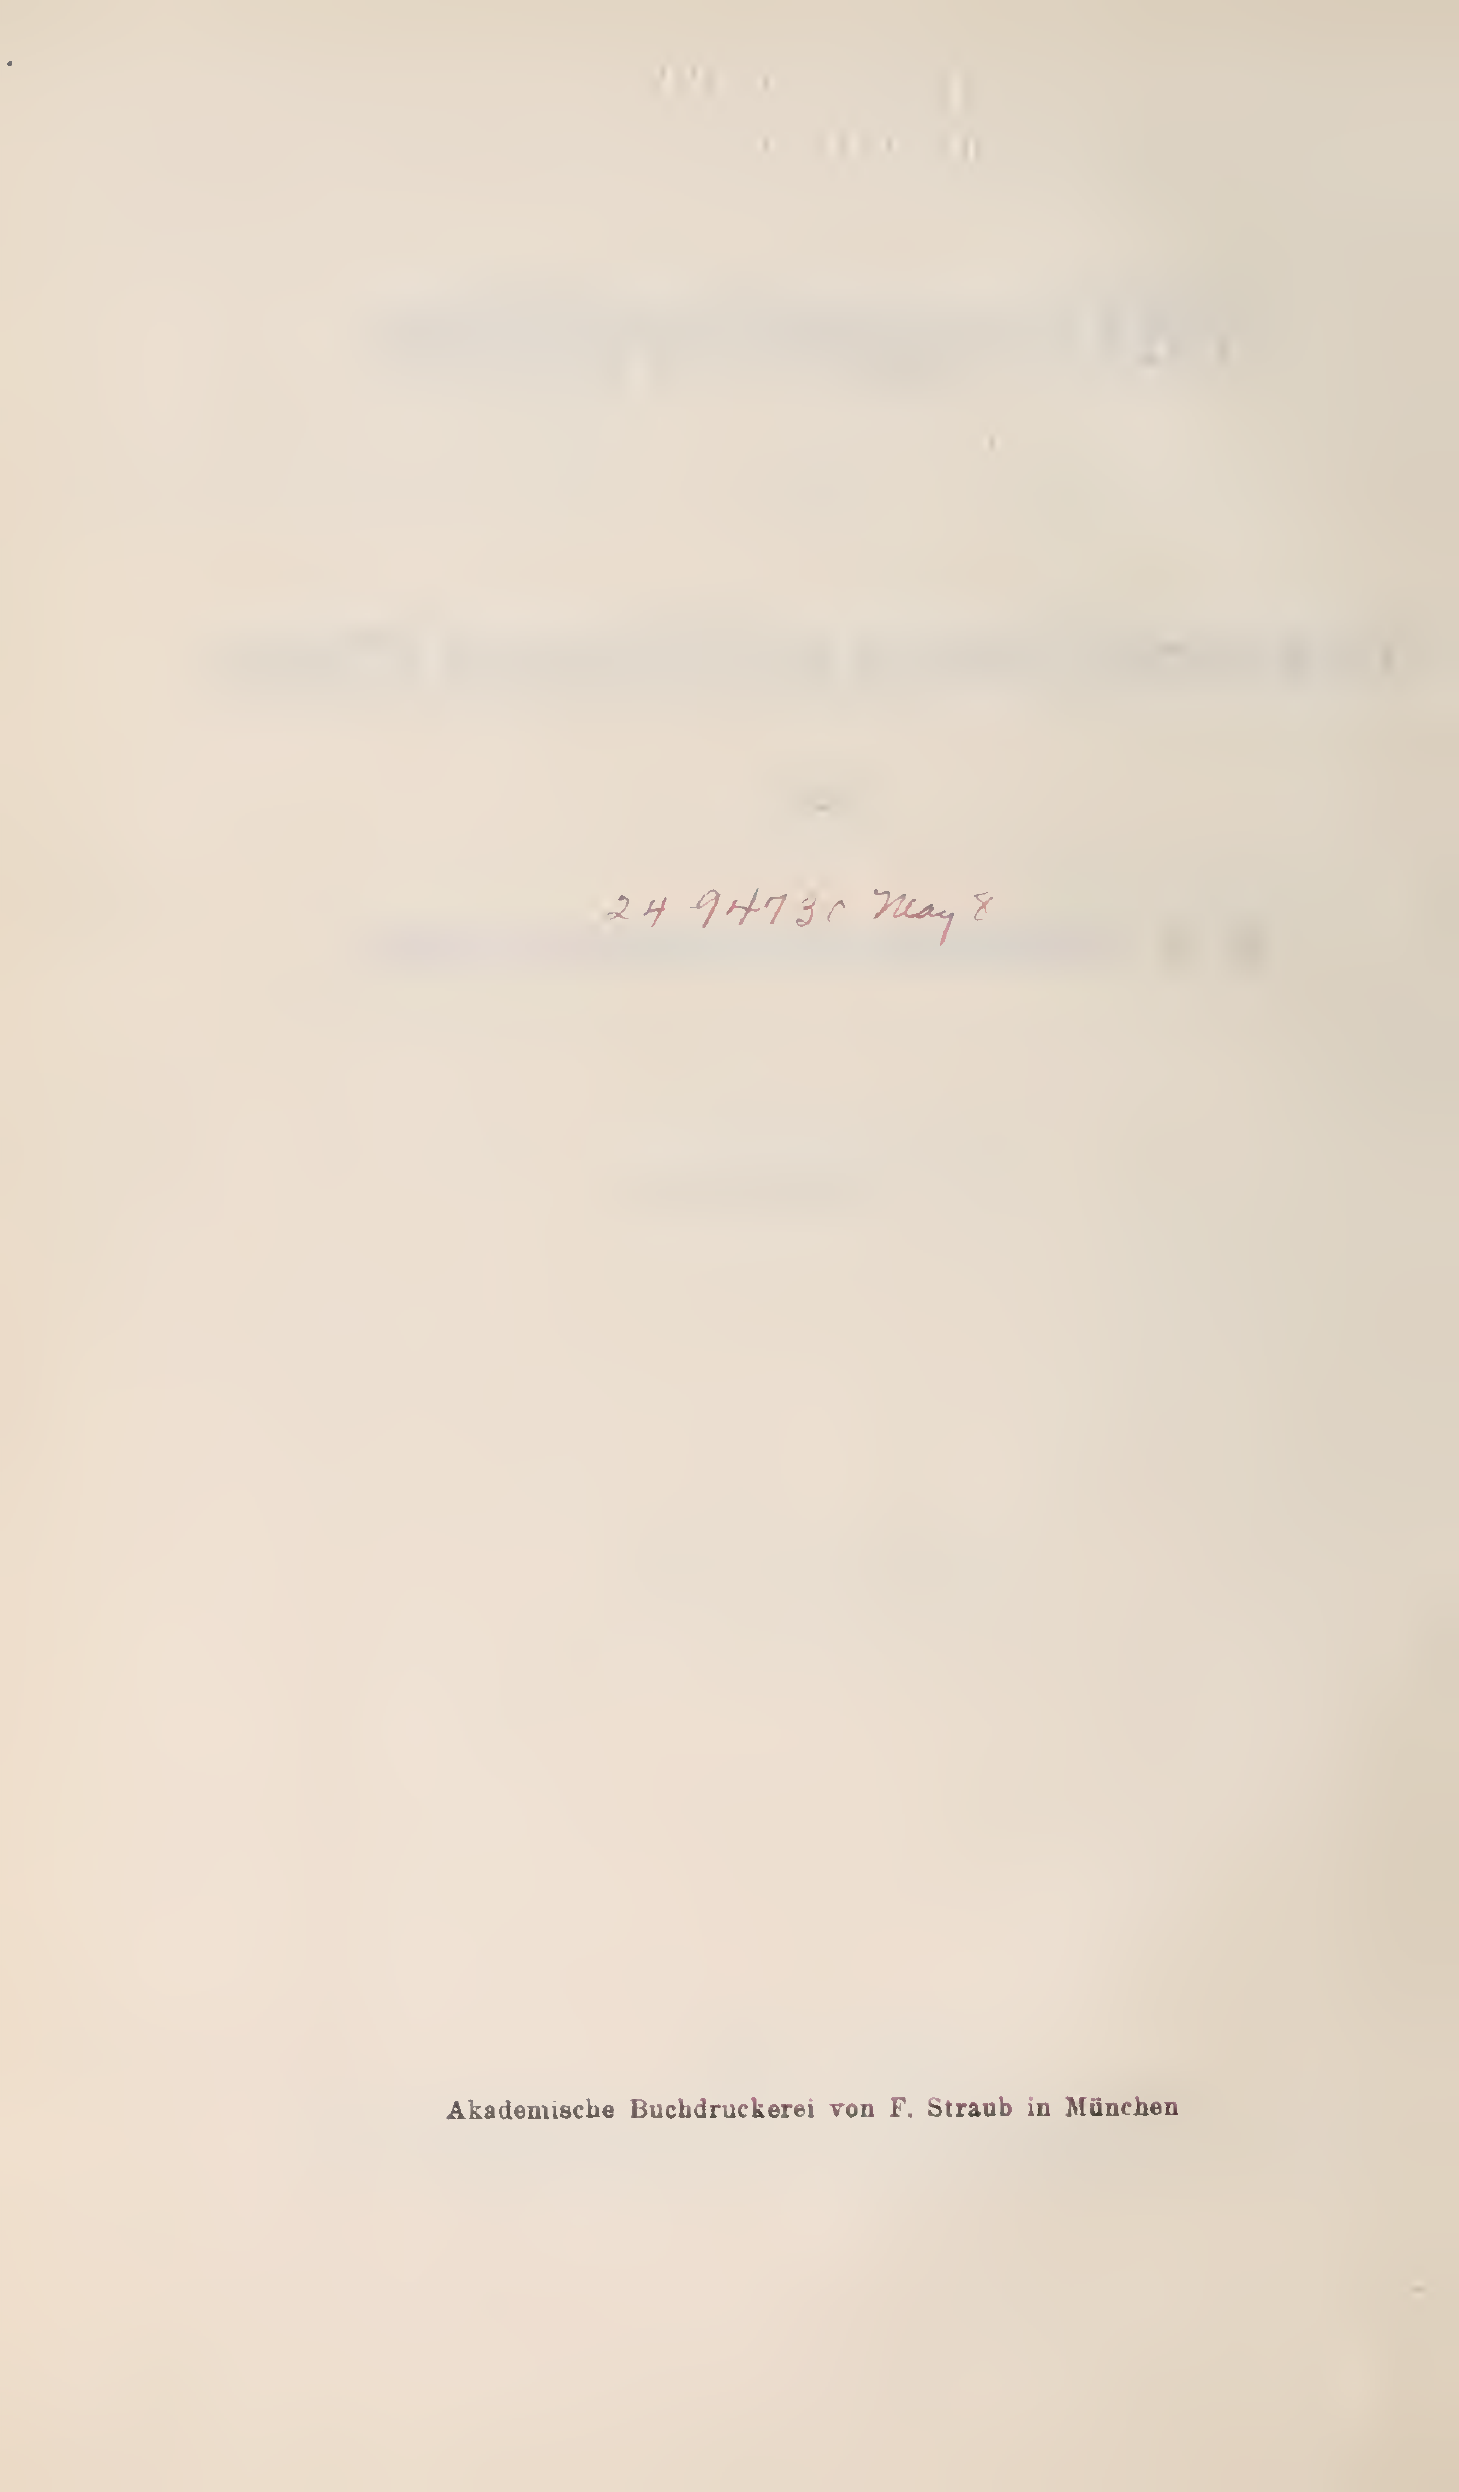 24 9473 May 8
Akademische Buchdruckerei von F. Straub in München